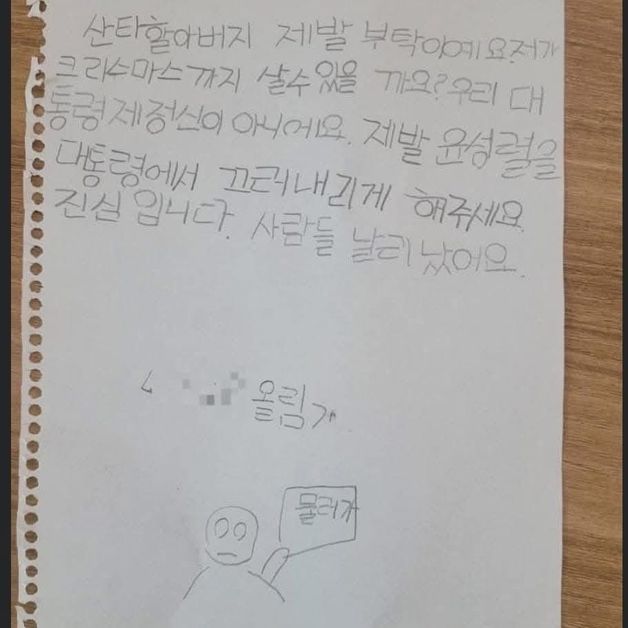 산타할아버지 제발 부탁이에요.저가
크리수마스까지 살수있을 까요?우리 대
통령제정신이 아니에요. 제발 윤성렬을
대통령에서 끄러내리게 해주세요.
진심 입니다. 사람들 날리났어요.
올림
물러가